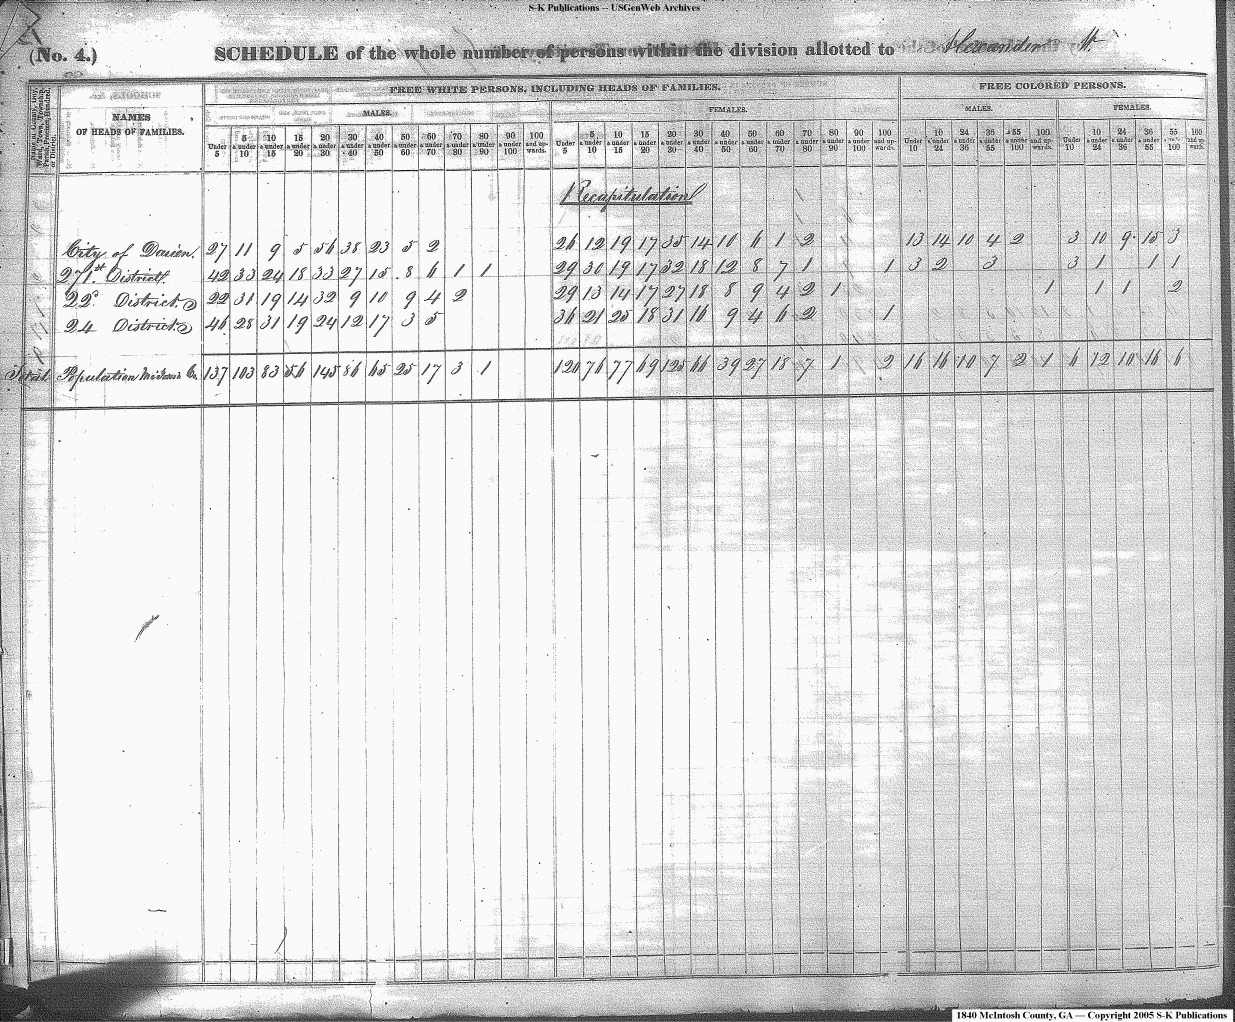 S-K Publications – USGenWeb Archives
(No. 4.) SCHEDULE of the whole number of persons within the division allotted to Alexander W.
FREE WHITE PERSONS, INCLUDING HEADS OF FAMILIES. FREE COLORED PERSONS.
NAMES
OF HEADS OF FAMILIES.
MALES. FEMALES. MALES. FEMALES.
Under 5 5 & under 10 10 & under 15 15 & under 20 20 & under 30 30 & under 40 40 & under 50 50 & under 60 60 & under 70 70 & under 80 80 & under 90 90 & under 100 100 and upwards. Under 5 5 & under 10 10 & under 15 15 & under 20 20 & under 30 30 & under 40 40 & under 50 50 & under 60 60 & under 70 70 & under 80 80 & under 90 90 & under 100 100 and upwards. Under 10 10 & under 24 24 & under 36 36 & under 55 55 & under 100 100 and upwards. Under 10 10 & under 24 24 & under 36 36 & under 55 55 & under 100 100 and upwards.
Recapitulation
City of Darien. 27 11 9 5 56 38 23 5 2 26 12 19 17 35 14 10 6 1 2 13 14 10 4 2 3 10 9 15 3
271st District. 42 33 24 18 33 27 15 8 6 1 1 29 30 19 17 32 18 12 8 7 1 1 3 2 3 3 1 1 1
22d District 22 31 19 14 32 9 10 9 4 2 29 13 14 17 27 18 8 9 4 2 1 1 1 1 2
24 District 46 28 31 19 24 12 17 3 5 36 21 25 18 31 16 9 4 6 2 1
Total Population McIntosh Co. 137 103 83 56 145 86 65 25 17 3 1 120 76 77 69 125 66 39 27 18 7 1 2 16 16 10 7 2 1 6 12 10 16 6
1840 McIntosh County, GA — Copyright 2005 S-K Publications